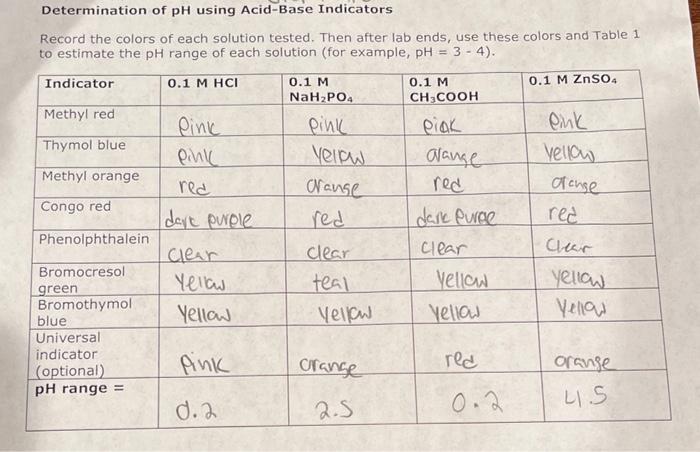 Determination of pH using Acid-Base Indicators
Record the colors of each solution tested. Then after lab ends, use these colors and Table 1
to estimate the pH range of each solution (for example, pH = 3 - 4).
Indicator 0.1 M HCl 0.1 M NaH₂PO₄ 0.1 M CH₃COOH 0.1 M ZnSO₄
Methyl red pink pink pink pink
Thymol blue pink yellow orange yellow
Methyl orange red orange red orange
Congo red dark purple red dark purple red
Phenolphthalein clear clear clear clear
Bromocresol green yellow teal yellow yellow
Bromothymol blue yellow yellow yellow yellow
Universal indicator (optional) pink orange red orange
pH range = 0.2 2.5 0.2 4.5